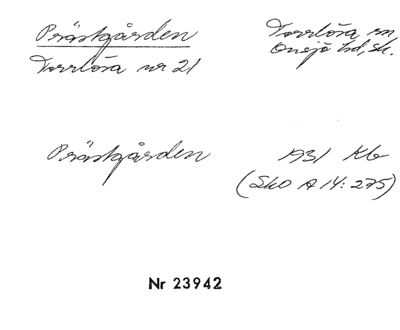 Prästgården
Torrlösa sn,
Torrlösa nr 21
Onsjö hd, sk.
Prästgården
1931 Kb
(SkO A 14:275)
Nr 23942